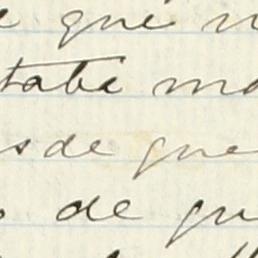 e que n
taba ma
sde que
de qu